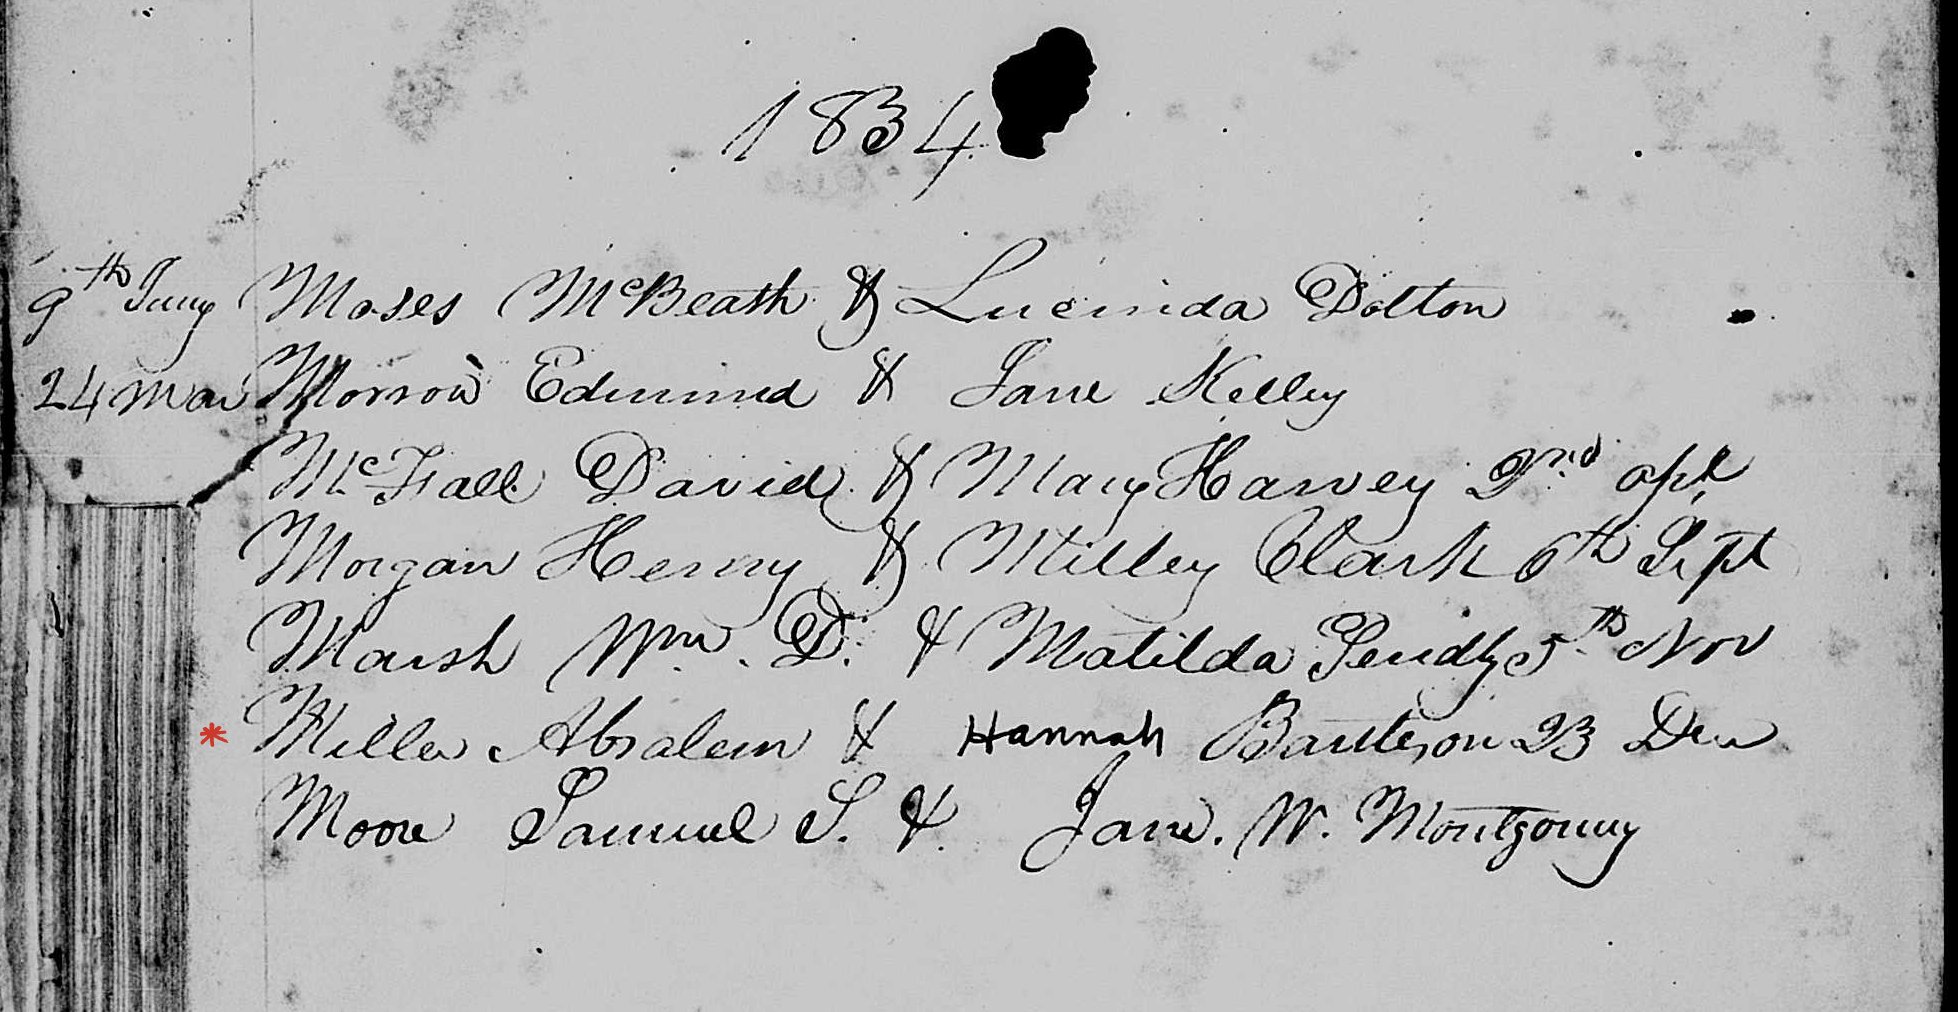 1834
9th Jany Moses McBeath & Lucinda Dolton
24 Mar Morrow Edmund & Jane Kelley
McFall David & Mary Harvey 2nd apl
Morgan Henry & Milley Clark 6th Sept
Marsh Wm. D. & Matilda Pendly 5th Nov
* Miller Absalem & Hannah 23 Dec
Moore Samuel S. & Jane. W. Montgomy